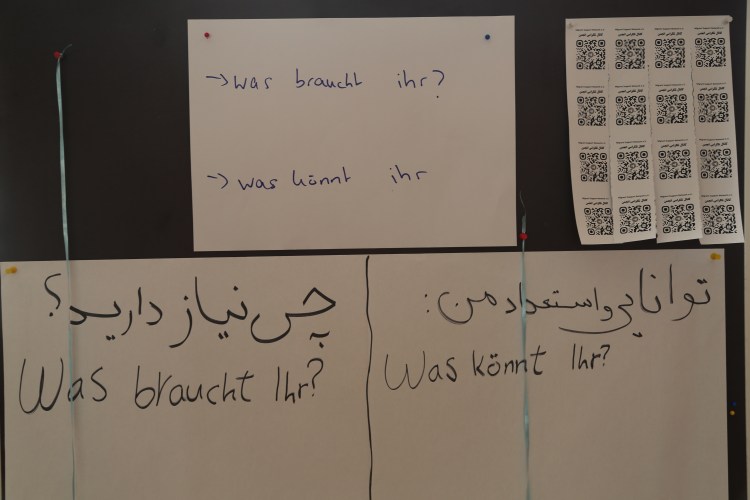 → was braucht ihr?
→ was könnt ihr
چی نیاز دارید؟
Was braucht Ihr?
توانایی و استعداد من:
Was könnt Ihr?